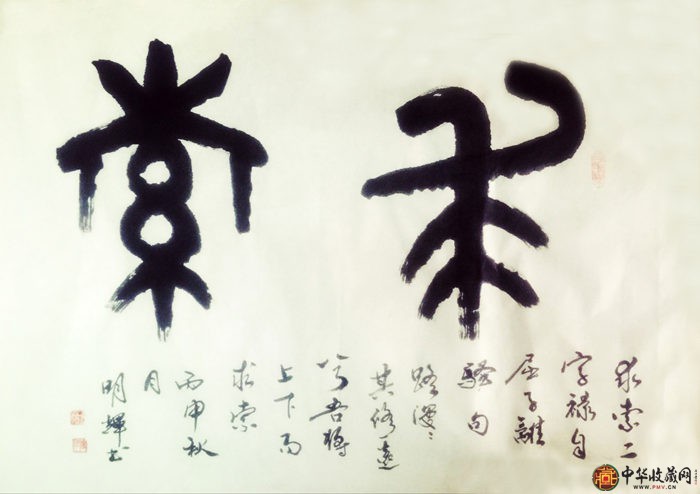 求索
求索二
字禄自
屈子離
騷句
路漫〻
其修遠
兮吾將
上下而
求索
丙申秋
月
明輝书
中华收藏网
WWW.PMV.CN